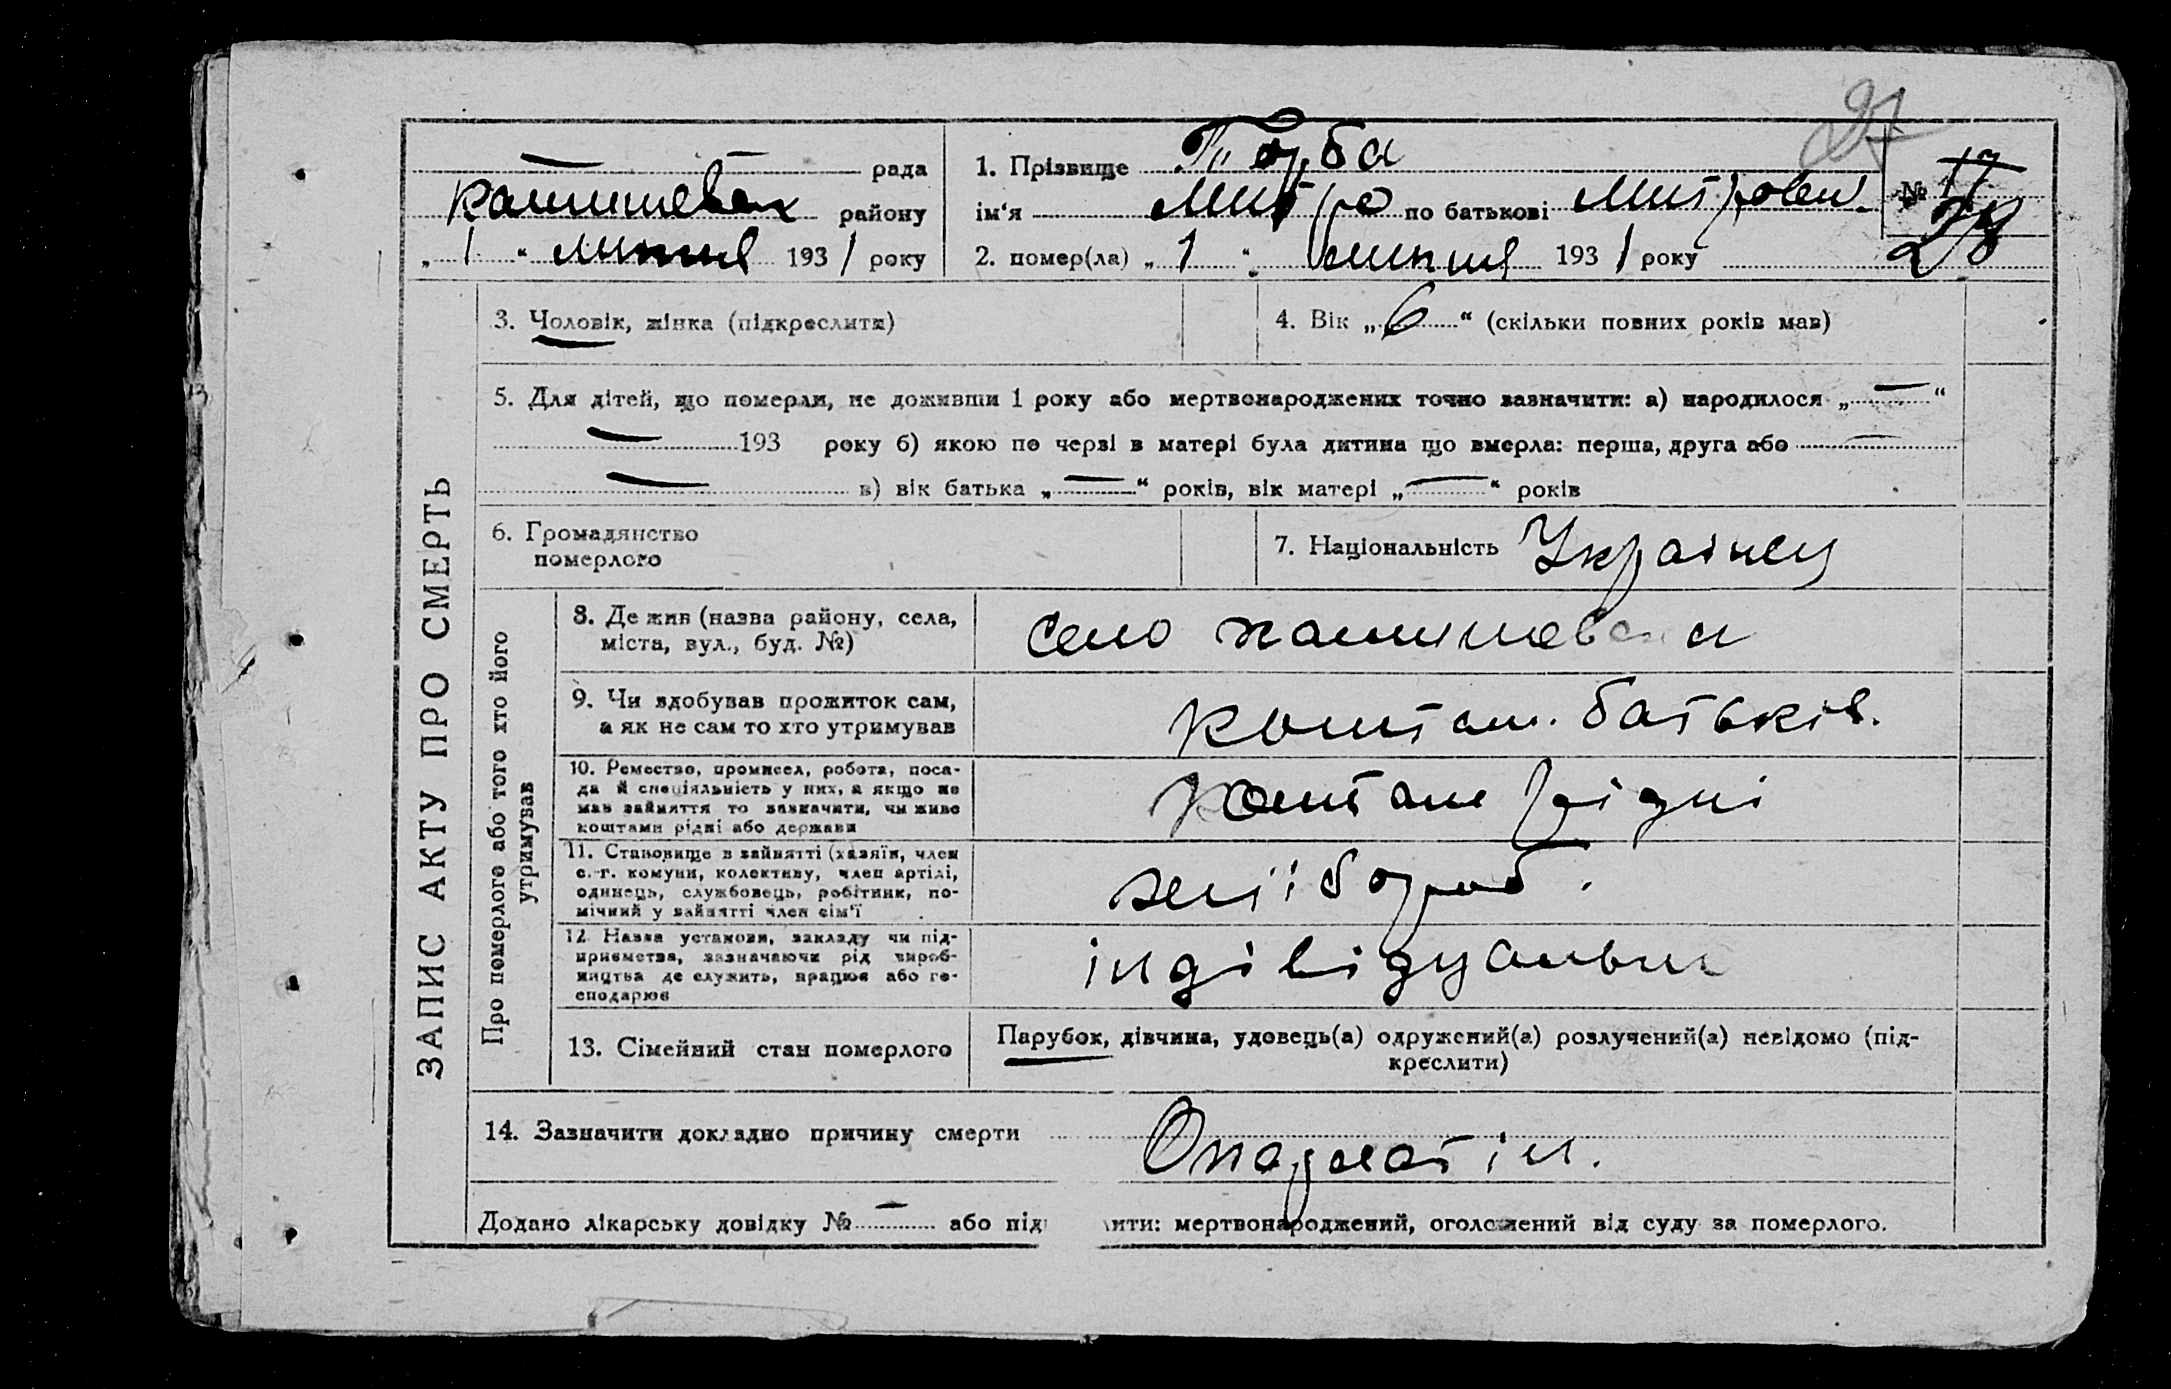 27
рада
району
„ 1 “ липня 1931 року
1. Прізвище Торба
ім‘я Митро по батькові Митрович.
№ 17
28
2. помер(ла) „ 1 “ липня 1931 року
ЗАПИС АКТУ ПРО СМЕРТЬ
3. Чоловік, жінка (підкреслити)
4. Вік „ 6 “ (скільки повних років мав)
5. Для дітей, що померли, не доживши 1 року або мертвонароджених точно зазначити: а) народилося „ — “
— 193 року б) якою по черзі в матері була дитина що вмерла: перша, друга або —
— в) вік батька „ — “ років, вік матері „ — “ років
6. Громадянство
померлого
7. Національність Українец
Про померлого або того хто його
утримував
8. Де жив (назва району, села,
міста, вул., буд. №)
село
9. Чи здобував прожиток сам,
а як не сам то хто утримував
коштам. батьків.
10. Ремество, промисел, робота, поса-
да й спеціяльність у них, а якщо не
мав зайняття то зазначити, чи живе
коштами рідні або держави
коштам рідні
11. Становище в зайнятті (хазяїн, член
с.-г. комуни, колективу, член артілі,
одинець, службовець, робітник, по-
мічний у зайнятті член сім‘ї
12. Назва установи, закладу чи під-
приємства, зазначаючи рід вироб-
ництва де служить, працює або го-
сподарює
13. Сімейний стан померлого
Парубок, дівчина, удовець(а) одружений(а) розлучений(а) невідомо (під-
креслити)
14. Зазначити докладно причину смерти
Додано лікарську довідку № — або під ити: мертвонароджений, оголошений від суду за померлого.